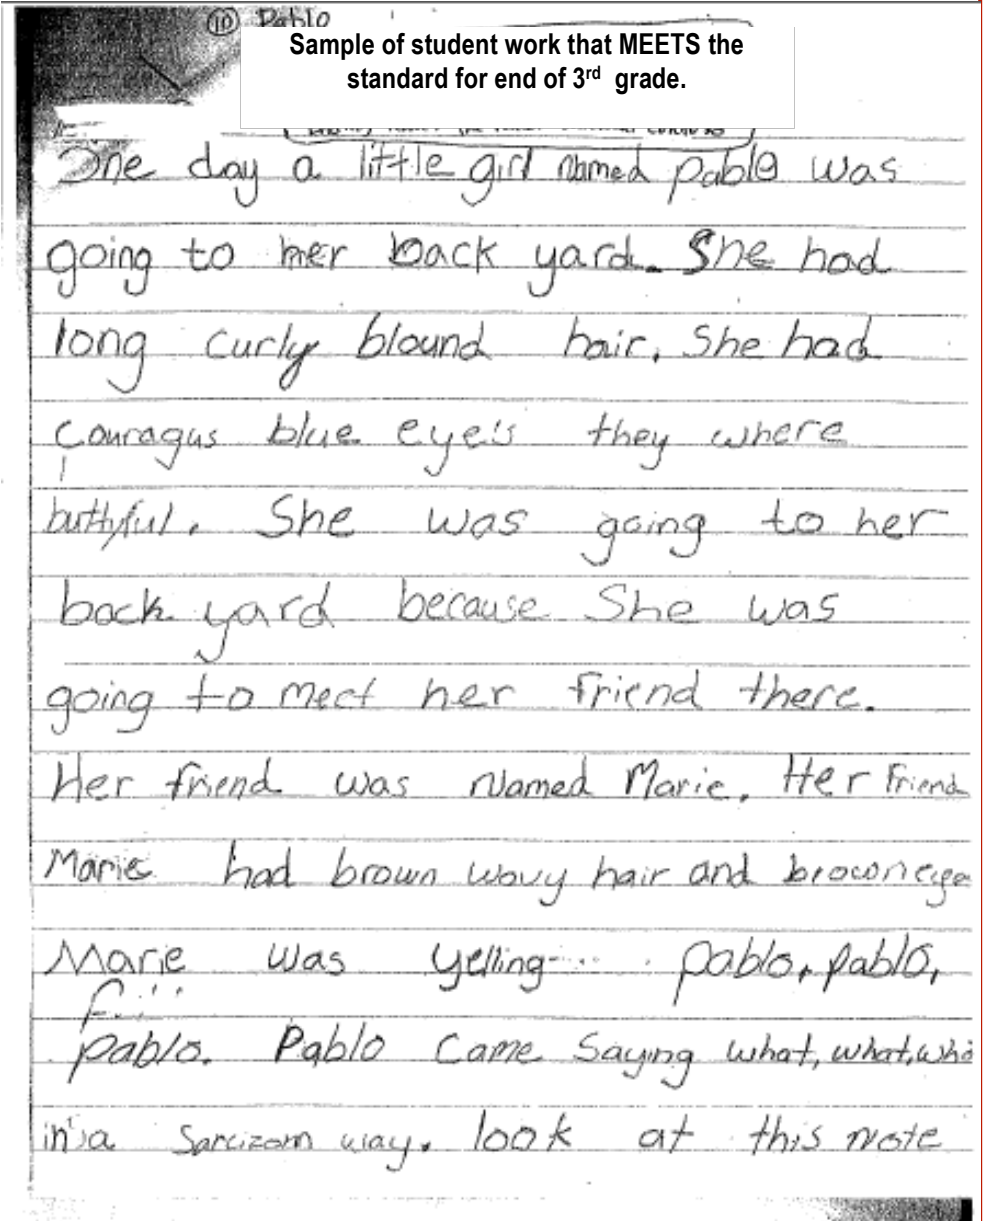 ⑩ Pablo
Sample of student work that MEETS the
standard for end of 3rd grade.
One day a little girl named pablo was
going to her back yard. She had
long curly blound hair. She had
Couragus blue eye's they where
buthyful. She was going to her
back yard because She was
going to meet her friend there.
Her friend was Named Marie. Her Friend
Marie had brown wavy hair and browon eye
Marie was yelling pablo, pablo,
pablo. Pablo Came Saying what, what, wha
in a Sarcizom way. look at this note